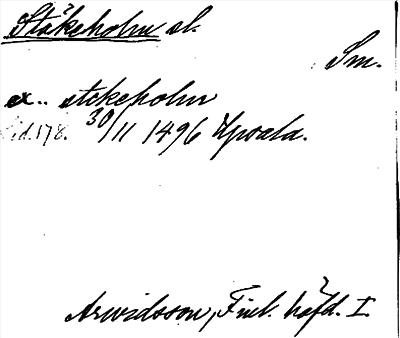 Stäkeholm sl.
Sm.
ex.. stekeholm
sid. 178. 30/11 1496 Upsala.
Arwidsson, Finl. häfd. I.